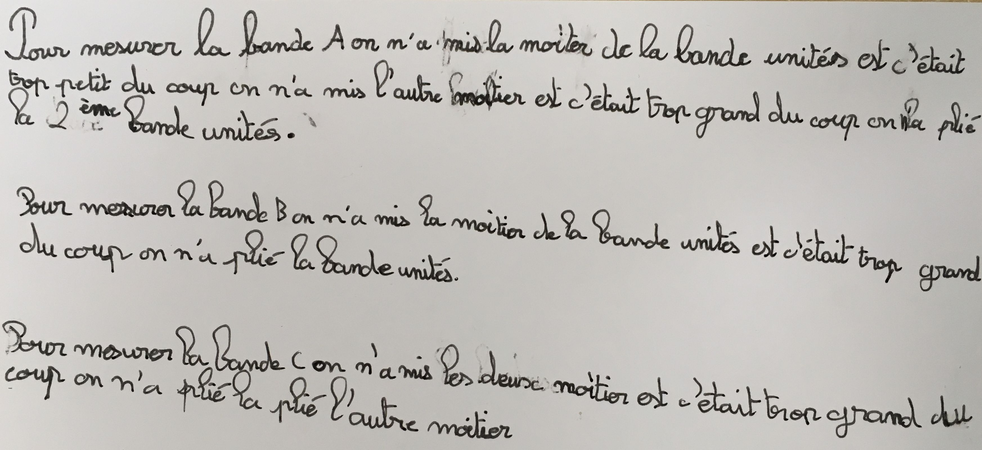 Pour mesurer la bande A on n'a mis la moiter de la bande unités est c'était
trop petit du coup on n'a mis l'autre moitier est c'était trop grand du coup on n'a plié
la 2ème bande unités.
Pour mesurer la bande B on n'a mis la moitier de la bande unités est c'était trop grand
du coup on n'a plié la bande unités.
Pour mesurer la bande C on n'a mis les deusc moitier est c'était trop grand du
coup on n'a plié la plié l'autre moitier